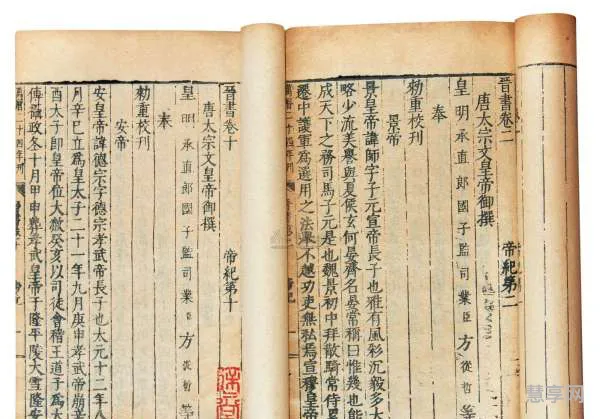 晉書卷二
唐太宗文皇帝御撰 帝紀第二
皇明承直郎國子監司業臣方從哲等
奉
勑重校刊
景帝
景皇帝諱師字子元宣帝長子也雅有風彩沉毅多大
略少流美譽與夏侯玄何晏齊名晏常稱曰惟幾也能
成天下之務司馬子元是也魏景初中拜散騎常侍
遷中護軍為選用之法舉不越功吏無私焉宣穆皇
萬曆二十四年刊
晉書卷十
唐太宗文皇帝御撰 帝紀第十
皇明承直郎國子監司業臣方從哲等
奉
勑重校刊
安帝
安皇帝諱德宗字德宗孝武帝長子也太元十二年八
月辛巳立為皇太子二十一年九月庚申孝武帝崩
酉太子即皇帝位大赦癸亥以司徒會稽王道子為
傅攝政冬十月甲申葬孝武皇帝于隆平陵大雪
萬曆二十四年刊
慧享网